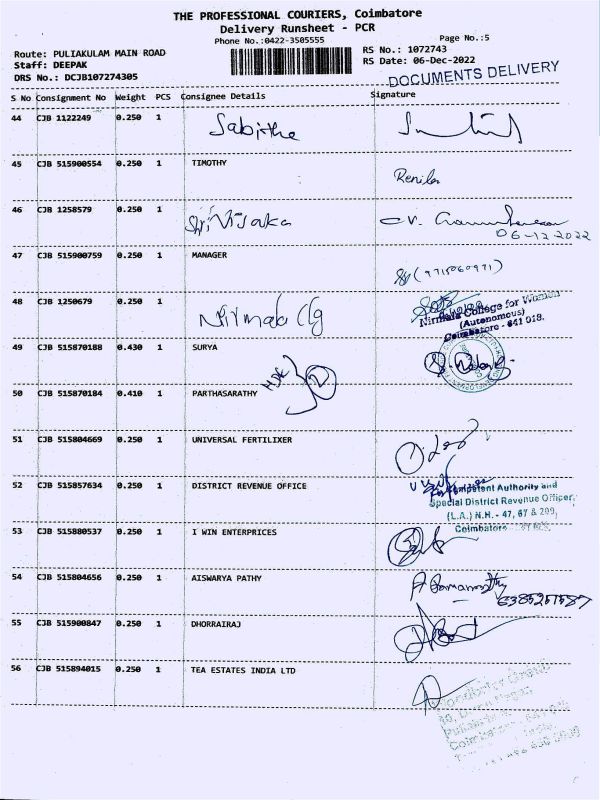 THE PROFESSIONAL COURIERS, Coimbatore
Delivery Runsheet - PCR
Phone No.:0422-3505555
Page No.:5
Route: PULIAKULAM MAIN ROAD
RS No.: 1072743
Staff: DEEPAK
RS Date: 06-Dec-2022
DRS No.: DCJB107274305
DOCUMENTS DELIVERY
S No Consignment No Weight PCS Consignee Details Signature
44 CJB 1122249 0.250 1 Sabitha
45 CJB 515900554 0.250 1 TIMOTHY
46 CJB 1258579 0.250 1 Sri Vijaka
06-12-2022
47 CJB 515900759 0.250 1 MANAGER
(9715060971)
48 CJB 1250679 0.250 1 Nirmala Clg
Nirmala College for Women
(Autonomous)
Coimbatore - 641 018.
49 CJB 515870188 0.430 1 SURYA
50 CJB 515870184 0.410 1 PARTHASARATHY
2
51 CJB 515804669 0.250 1 UNIVERSAL FERTILIXER
52 CJB 515857634 0.250 1 DISTRICT REVENUE OFFICE
Competent Authority and
Special District Revenue Officer,
(L.A.) N.H. - 47, 67 & 209,
Coimbatore
53 CJB 515880537 0.250 1 I WIN ENTERPRICES
54 CJB 515804656 0.250 1 AISWARYA PATHY
55 CJB 515900847 0.250 1 DHORRAIRAJ
56 CJB 515894015 0.250 1 TEA ESTATES INDIA LTD